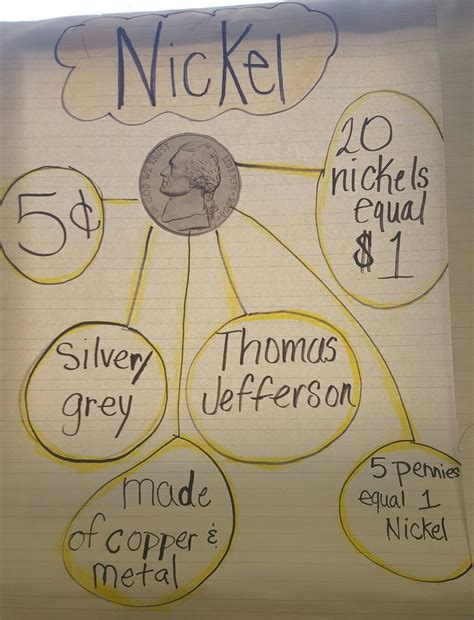 Nickel
IN GOD WE TRUST
LIBERTY
5¢
20
nickels
equal
$1
Silvery
grey
Thomas
Jefferson
made
of copper &
metal
5 pennies
equal 1
Nickel